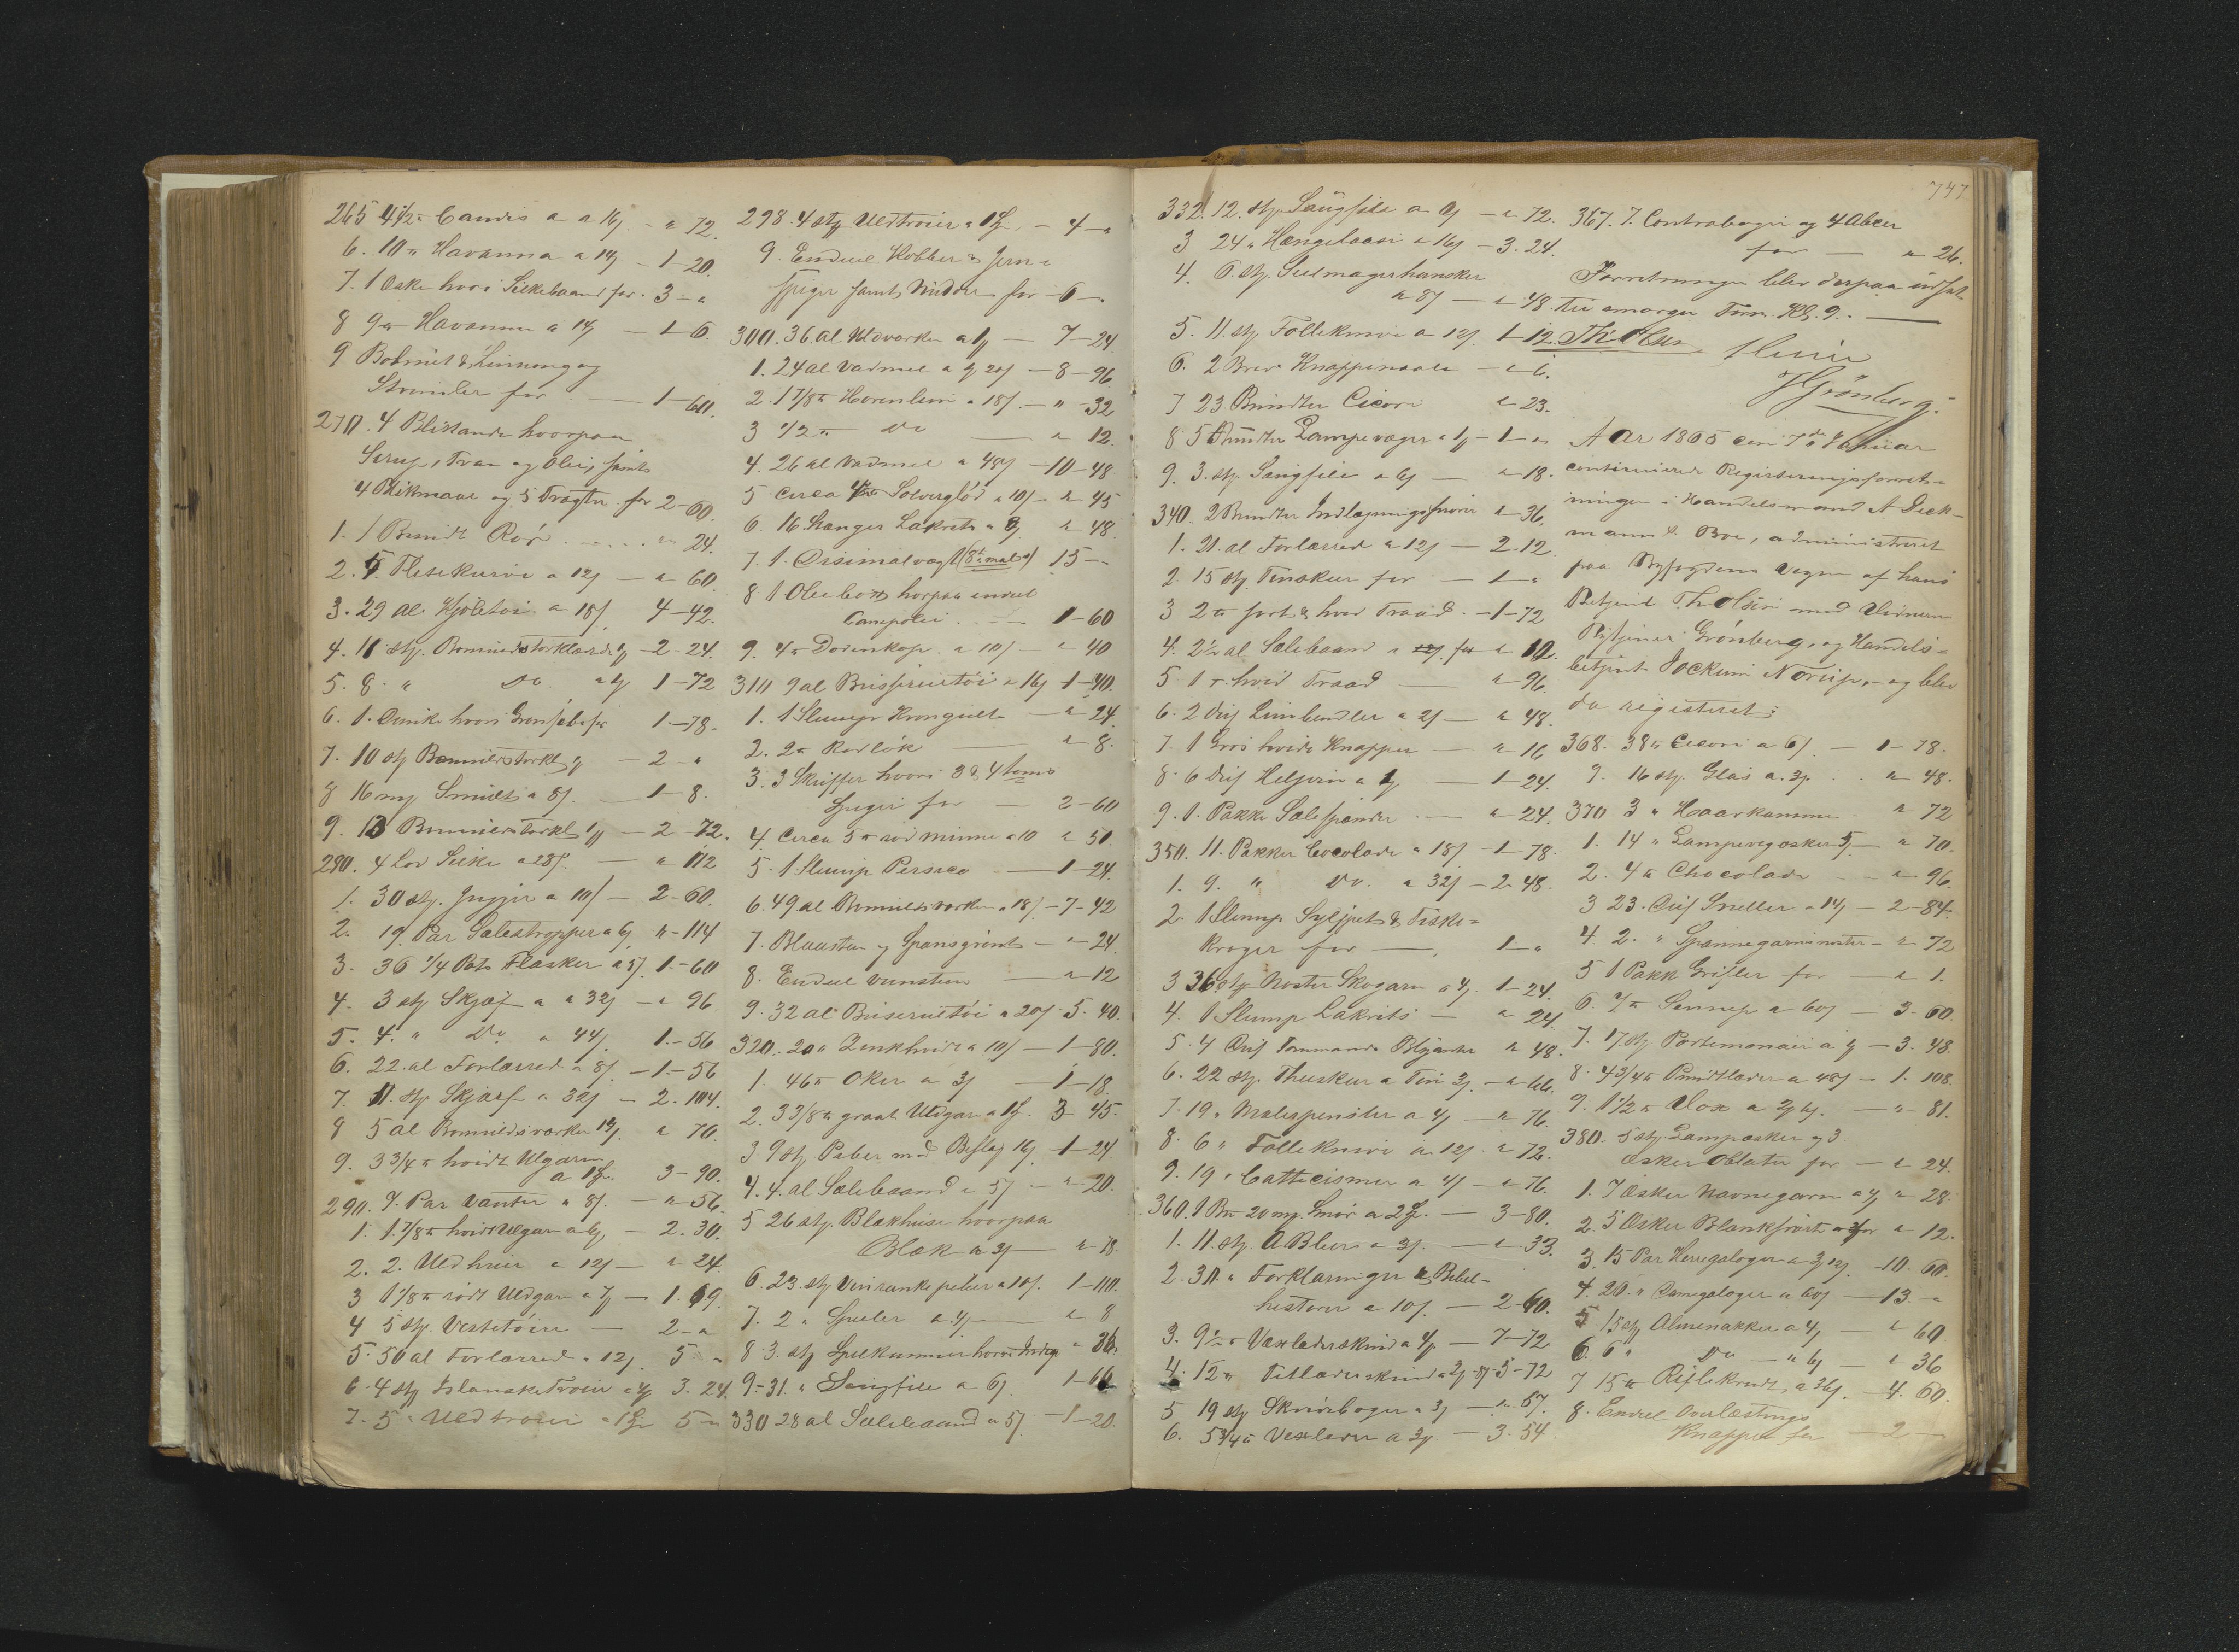 265 4 1/2 " Candis a 16 - " 72.
6. 10 " Havanna a 14 - 1-20.
7. 1 Æske hvori Silkebaand for. 3 - "
8 9 " Havanna a 14 - 1-6.
9 Bomuld & Linneng og
Strimler for - 1-60.
270. 4 Blikkande hvorpaa
Sirup, Tran og Olie, samt
4 Blikmaal og 5 Tragter for 2-60.
1. 1 Bundt Rør . . . . " 24.
2. 5 Flesekurve a 12 - " 60.
3. 29 al. Kjoletøi a 18 4-42.
4. 11 stk. Bomuldstørklæder - 2-24.
5. 8. " Do. 1-72
6. 1. hvori 1-78.
7. 10 stk Bomuldstørkl - 2 - "
8 16 mg Smult a 8 - 1-8.
9. 13 Bomuldstørkl - 2-72.
280. 4 lod Silke a 28 - " 112
1. 30 stk. a 10 - 2-60.
2. 19 Par Seletropper a 6 " -114
3. 36 1/4 Pots Flasker a 5 1-60
4. 3 stk Skjærf a 32 - " 96
5. 4. " Do. a 44 1-56
6. 22 al Forlærred a 8 - 1-56
7. 11 stk Skjærf a 32 - 2. 104.
8 5 al Bomuldsværken 14 " 70.
9. 3 3/4 " hvidt Ulgarn
a 3-90.
290. 7. Par Vanter a 8 - " 56.
1. 1 7/8 " hvidt Ulgarn a - 2. 30.
2. 2. Uldhuer a 12 - " 24.
3 1 1/8 " rødt Uldgarn a - 1. 69.
4 5 stk. Vestetøier - 2 - "
5. 50 al Forlærred a 12 5 - "
6. 4 stk Islandske Trøier 3. 24.
7. 5 " Uldtrøier a 5 - "
298. 4 stk Uldtrøier a - 4 - "
9. Endeel Kobber & Jern =
spiger samt Nudder for - 6 -
300. 36 al Uldværken a - 7-24
1. 24 al Vadmel a 24 - 8-96
2. 1 7/8 " Horenlim a 18 - " -32
3 1/2 " Do - " 12.
4. 26 al Vadmel a 48 - 10-48
5 Circa Solverglød a 10 - " 45
6. 16 Stænger Lakrits a 3 " 48.
7. 1. Desimalvægt (8 mal) 15 -
8 1 Oliebox horpaa endeel
Campolie . . . 1-60
9. 4 " Dodenkop. a 10 - " 40
310 9 al Buxseruetøi a 16 1-40.
1. 1 Slump Krongult - " 24
2. 2 " Rodlök - " 8.
3. 3 Skuffer hvori 3 & 4 toms
Spiger for - 2-60
4. Circa 5 " rød Minne a 10 " 50.
5. 1 Slump Persico - 1-24.
6. 49 al Bomuldsværken a 18 - 7-42
7. Blaasten og Spansgrønt - " 24
8. Endeel - " 12
9. 32 al Buxseruetøi a 20 5. 40
320. 20 " Zinkhvidt a 10 - 1-80.
1. 46 " Oker a 3 - 1-18.
2. 3 3/8 " graat Uldgarn a 3 45.
3 9 stk Piber med Beslag 16 1-24
4. 4. al Selebaand a 5 - " 20.
5 26 stk. Blækhuse hvorpaa
Blæk a 3 - " 78
6. 23. stk a 10 1-110.
7. 2 " Speiler a 4 - " 8
8. 3. stk Speilkummer " 36
9. 31. " Saugfile a 6 1-66
330 28 al Selebaand a 5 - 1-20.
747
332. 12. stk Saugfile a 6 - " 72.
3 24 " Hængelaase a 16 - 3. 24.
4. 6. stk. Seilmagerhansker
a 8 - " 48.
5. 11. stk Follekniver a 12 1-12.
6. 2 Brev Knappenaale - " 6.
7 23 Bundter Cicori " 23.
8. 5 Bundter Lampevæger a - 1 - "
9. 3. stk. Saugfile a 6 - " 18.
340. 2 Bundter Indlægningssnører " 36.
1. 21. al Forlærred a 12 - 2. 12.
2. 15 stk Tinskeer for - 1 - "
3 2 " sort & hvid Traad. - 1-72
4. 2 1/2 al Selebaand a for " 12.
5 1 " hvid Traad - " 96.
6. 2 Dus Limbendler a 2 - " 48.
7. 1 Gros hvide Knapper - " 16
8. 6 Dus a - 1-24.
9. 1. Pakke Selespænder - " 24.
350. 11. Pakker Cocolade a 18 - 1-78.
1. 9. " Do. a 32 - 2-48.
2. 1 Slump & Fiske =
kroger for - 1 - "
3 36 stk Noster Skogarn a 4 1-24.
4. 1 Slump Lakrits - " 24
5. 4 Dus Tommands Blyanter " 48.
6. 22 stk. Theskeer a Tin 3 - " 66.
7. 19 " Malerpensler a 4 - " 76.
8. 6 " Follekniver a 12 - " 72.
9. 19 " Catticismer a 4 - " 76.
360. 1 20 mg. Smör a 2 - 3-80.
1. 11. stk. A Bleer a 3 - " 33.
2. 30 " Forklaringer & Bibel-
historier a 10 - 2-60.
3. 9 Vaxlæderskind a - 7-72
4. 12 " Fetlæderskind a - 5-72
5 19 stk Skrivbøger a 3 - " 57.
6. 5 3/4 " Vexleder a - 3. 54
367. 7. Contrabøger og 4 Abcer
for - " 26.
Forretningen blev derpaa udsat
til imorgen Form. Kl. 9. -
Th Olsen
H Grönberg.
Aar 1865 den 7de Januar
continuerede Registeringsforret-
ningen i Handelsmand A Dick-
manns Boe, administreret
paa Byfogdens Vegne af hans
Betjent Th Olsen med Vidnerne
Grönberg, og Handels=
betjent Jockum Norup, - og blev
da registeret:
368. 38 " Cicori a 6 - 1-78.
9. 16 stk. Glas a 3 . . " 48.
370 3 " Haarkamme " 72
1. 14 " Lampevegæsker 5 - " 70.
2. 4 " Chocolade - " 96.
3 23. Dus Sneller a 14 - 2-84.
4. 2. " - " 72
5 1 Pakk Grifler for - " 1.
6. " Sennep a 60 - 3-60.
7. 17 stk Portemonaier a - 3. 48.
8. 4 3/4 " Pundlæder a 48 - 1. 108.
9. 1 1/2 " Vox a - " 81.
380. 5 stk. Lampæsker og 3
Æsker Oblater for - " 24.
1. 7 Æsker Navnegarn a 4 " 28.
2. 5 Æsker Blanksvært for " 12.
3. 15 Par Herregaloger a 10. 60.
4. 20. " Damegaloger a 60 - 13 - "
5 15 stk Almenakker a 4 - " 60
6. 6 " Do - " 6 - " 36
7 15 " Riflekrudt, a 36 - 4. 60.
8. Endeel Overlæstnings
Knapper for - 2 -